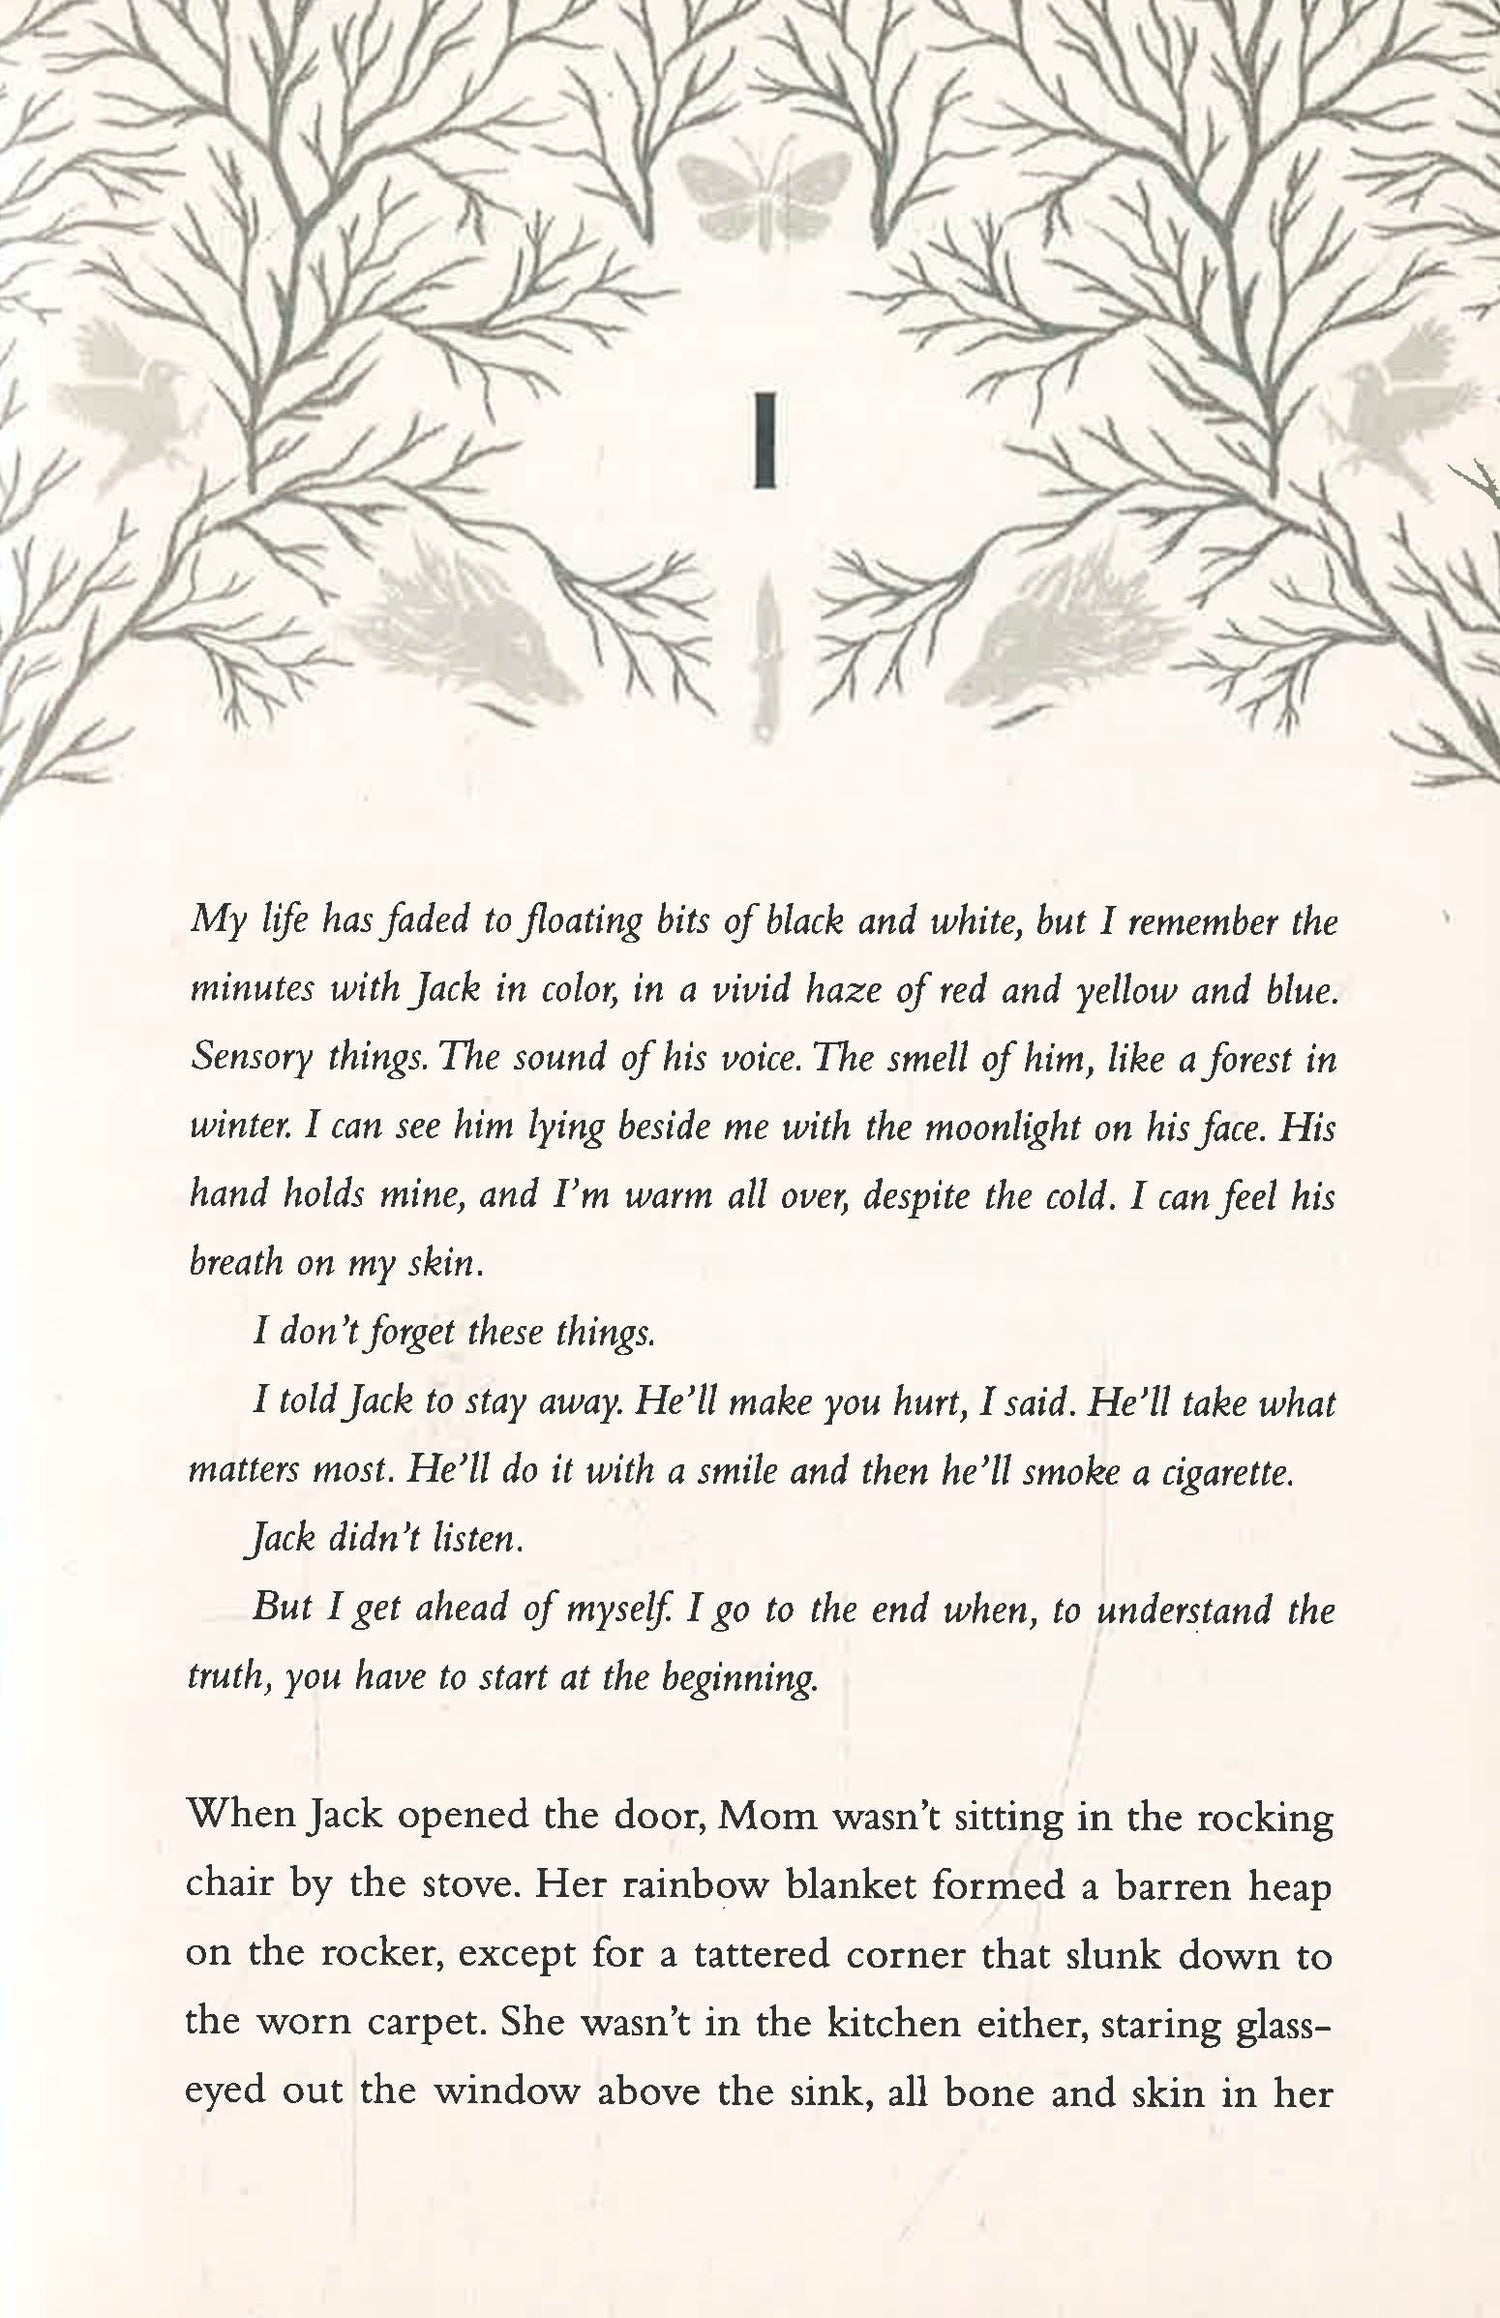 I
My life has faded to floating bits of black and white, but I remember the
minutes with Jack in color, in a vivid haze of red and yellow and blue.
Sensory things. The sound of his voice. The smell of him, like a forest in
winter. I can see him lying beside me with the moonlight on his face. His
hand holds mine, and I'm warm all over, despite the cold. I can feel his
breath on my skin.
I don't forget these things.
I told Jack to stay away. He'll make you hurt, I said. He'll take what
matters most. He'll do it with a smile and then he'll smoke a cigarette.
Jack didn't listen.
But I get ahead of myself. I go to the end when, to understand the
truth, you have to start at the beginning.
When Jack opened the door, Mom wasn't sitting in the rocking
chair by the stove. Her rainbow blanket formed a barren heap
on the rocker, except for a tattered corner that slunk down to
the worn carpet. She wasn't in the kitchen either, staring glass-
eyed out the window above the sink, all bone and skin in her